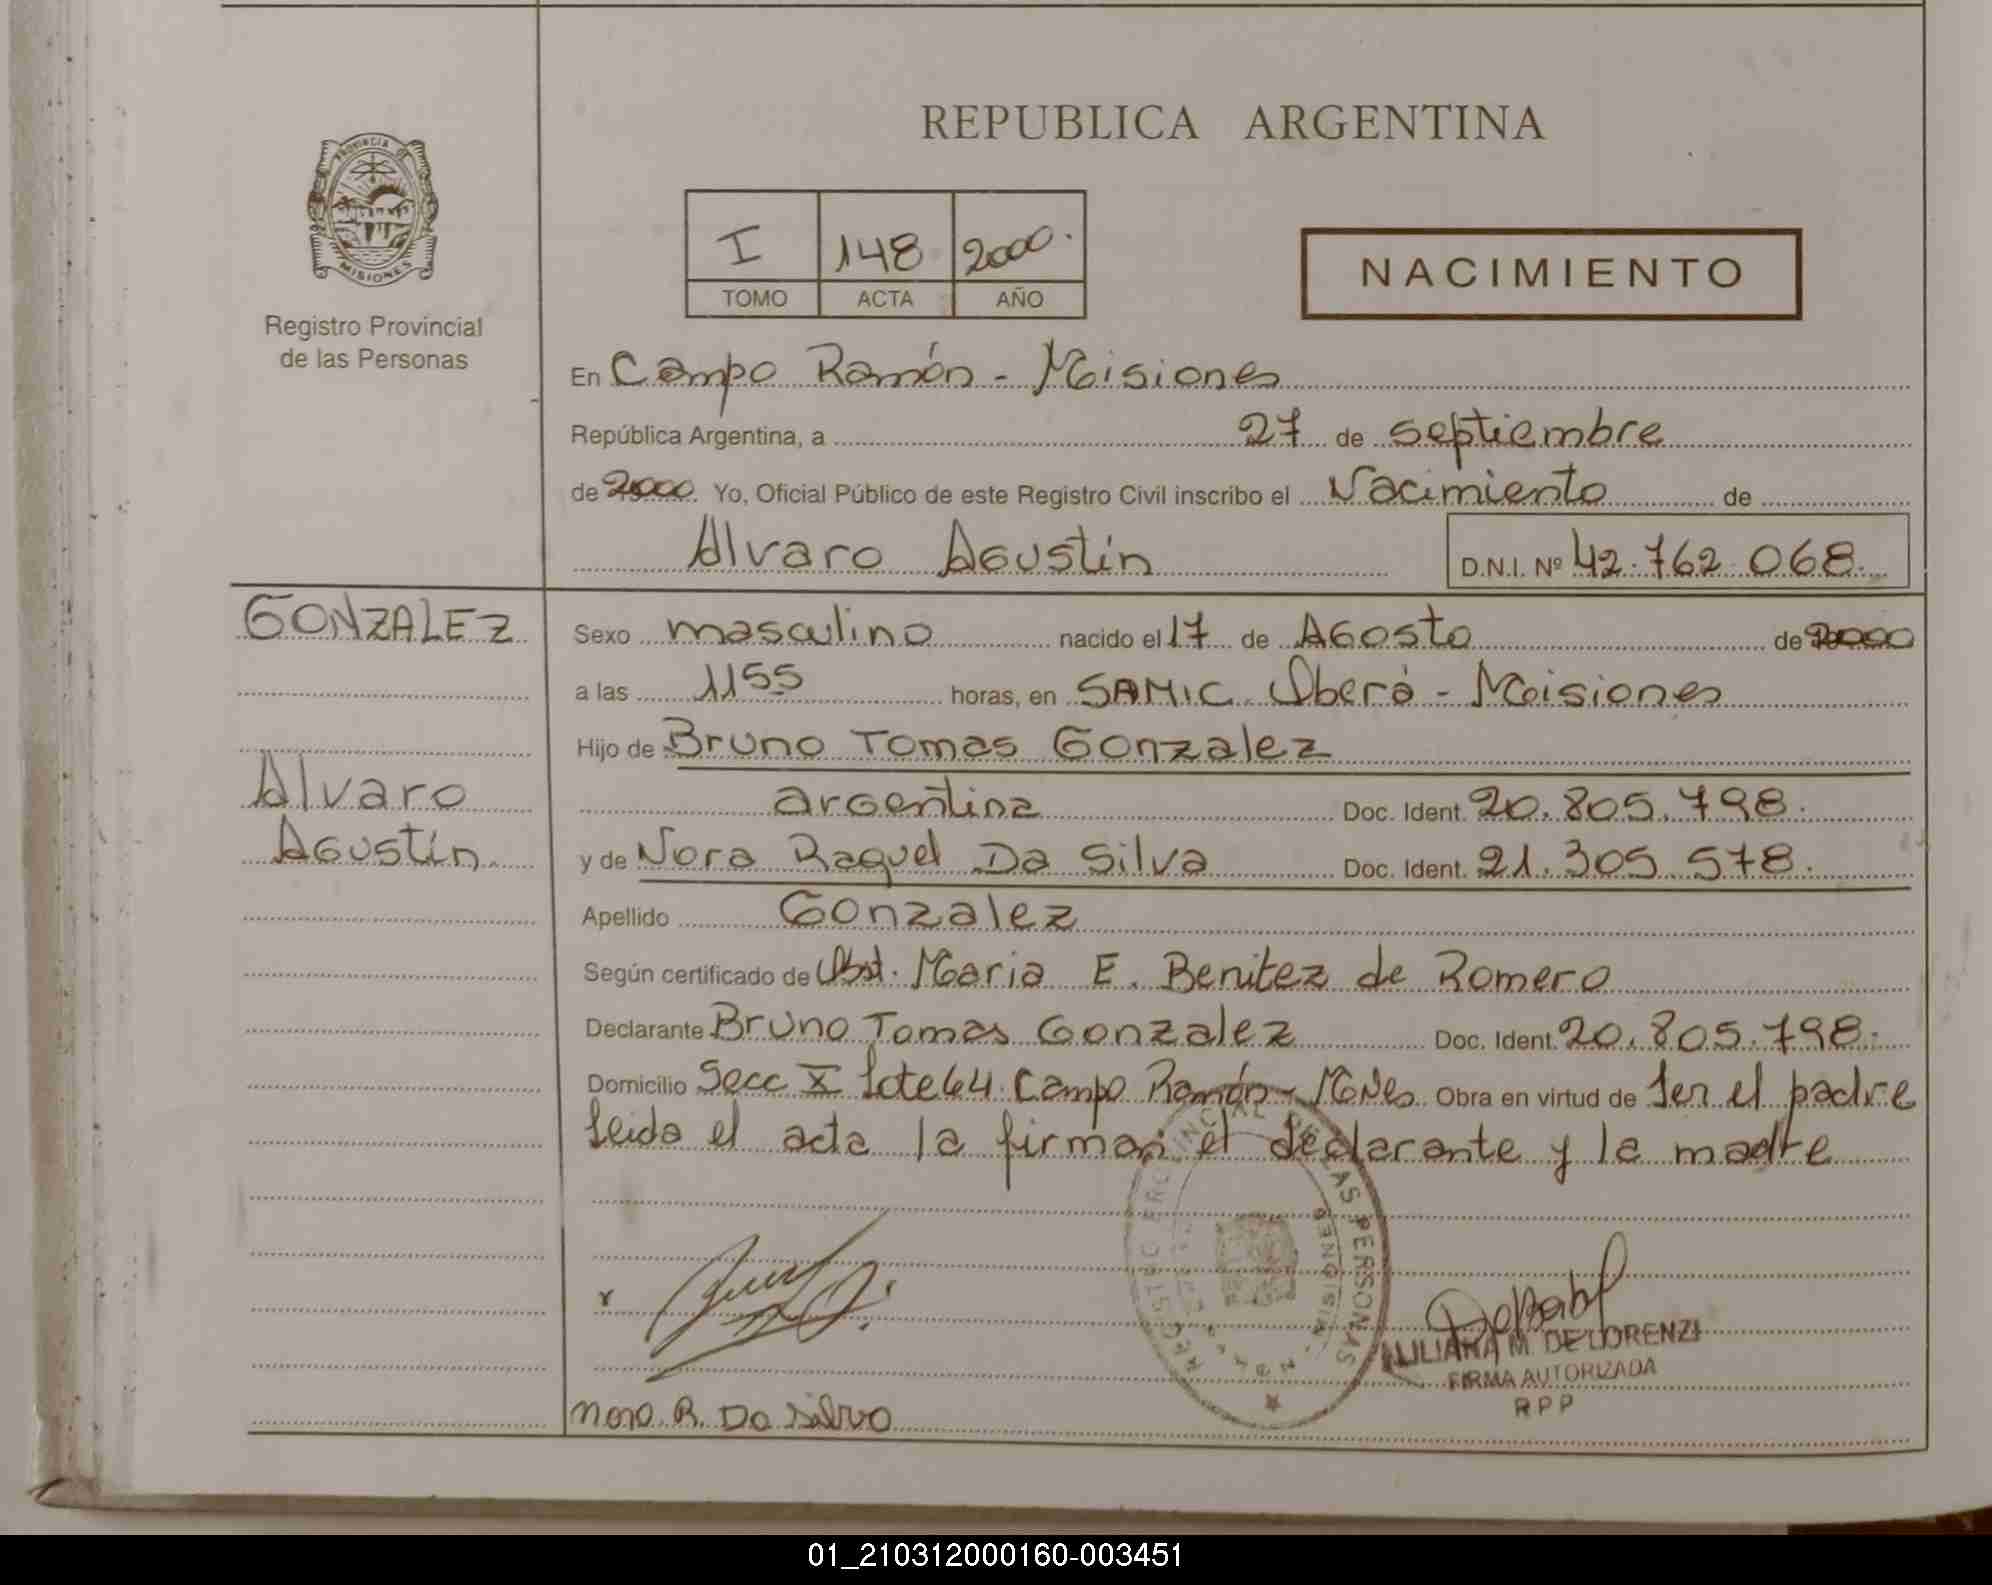 REPUBLICA ARGENTINA
PROVINCIA DE
MISIONES
Registro Provincial
de las Personas
I 148 2000.
TOMO ACTA AÑO
NACIMIENTO
En Campo Ramón - Misiones
República Argentina, a 27 de septiembre
de 2000 Yo, Oficial Público de este Registro Civil inscribo el Nacimiento de
Alvaro Agustín D.N.I. Nº 42.762.068.
GONZALEZ
Alvaro
Agustín
Sexo masculino nacido el 17 de Agosto de 2000
a las 1155 horas, en SAMIC Oberá - Misiones
Hijo de Bruno Tomas Gonzalez
argentina Doc. Ident. 20.805.798.
y de Nora Raquel Da Silva Doc. Ident. 21.305.578.
Apellido Gonzalez
Según certificado de Obst. Maria E. Benitez de Romero
Declarante Bruno Tomas Gonzalez Doc. Ident. 20.805.798.
Domicilio Secc X lote 64 Campo Ramón - Mnes Obra en virtud de ser el padre
leida el acta la firman el declarante y la madre
REGISTRO PROVINCIAL DE LAS PERSONAS
MISIONES
LILIANA M. DE LORENZI
FIRMA AUTORIZADA
RPP
Nora R. Da Silva
01_210312000160-003451